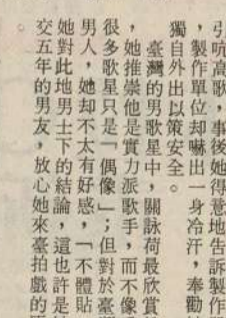 引吭高歌,事後她得意地告訴製作
,製作單位却嚇出一身冷汗,奉勸
獨自外出以策安全。
臺灣的男歌星中,關詠荷最欣賞
,她推崇他是實力派歌手,而不像
很多歌星只是「偶像」;但對於臺
男人,她却不太有好感,「不體貼
她對此地男士下的結論,這也許是
交五年的男友,放心她來臺拍戲的
。